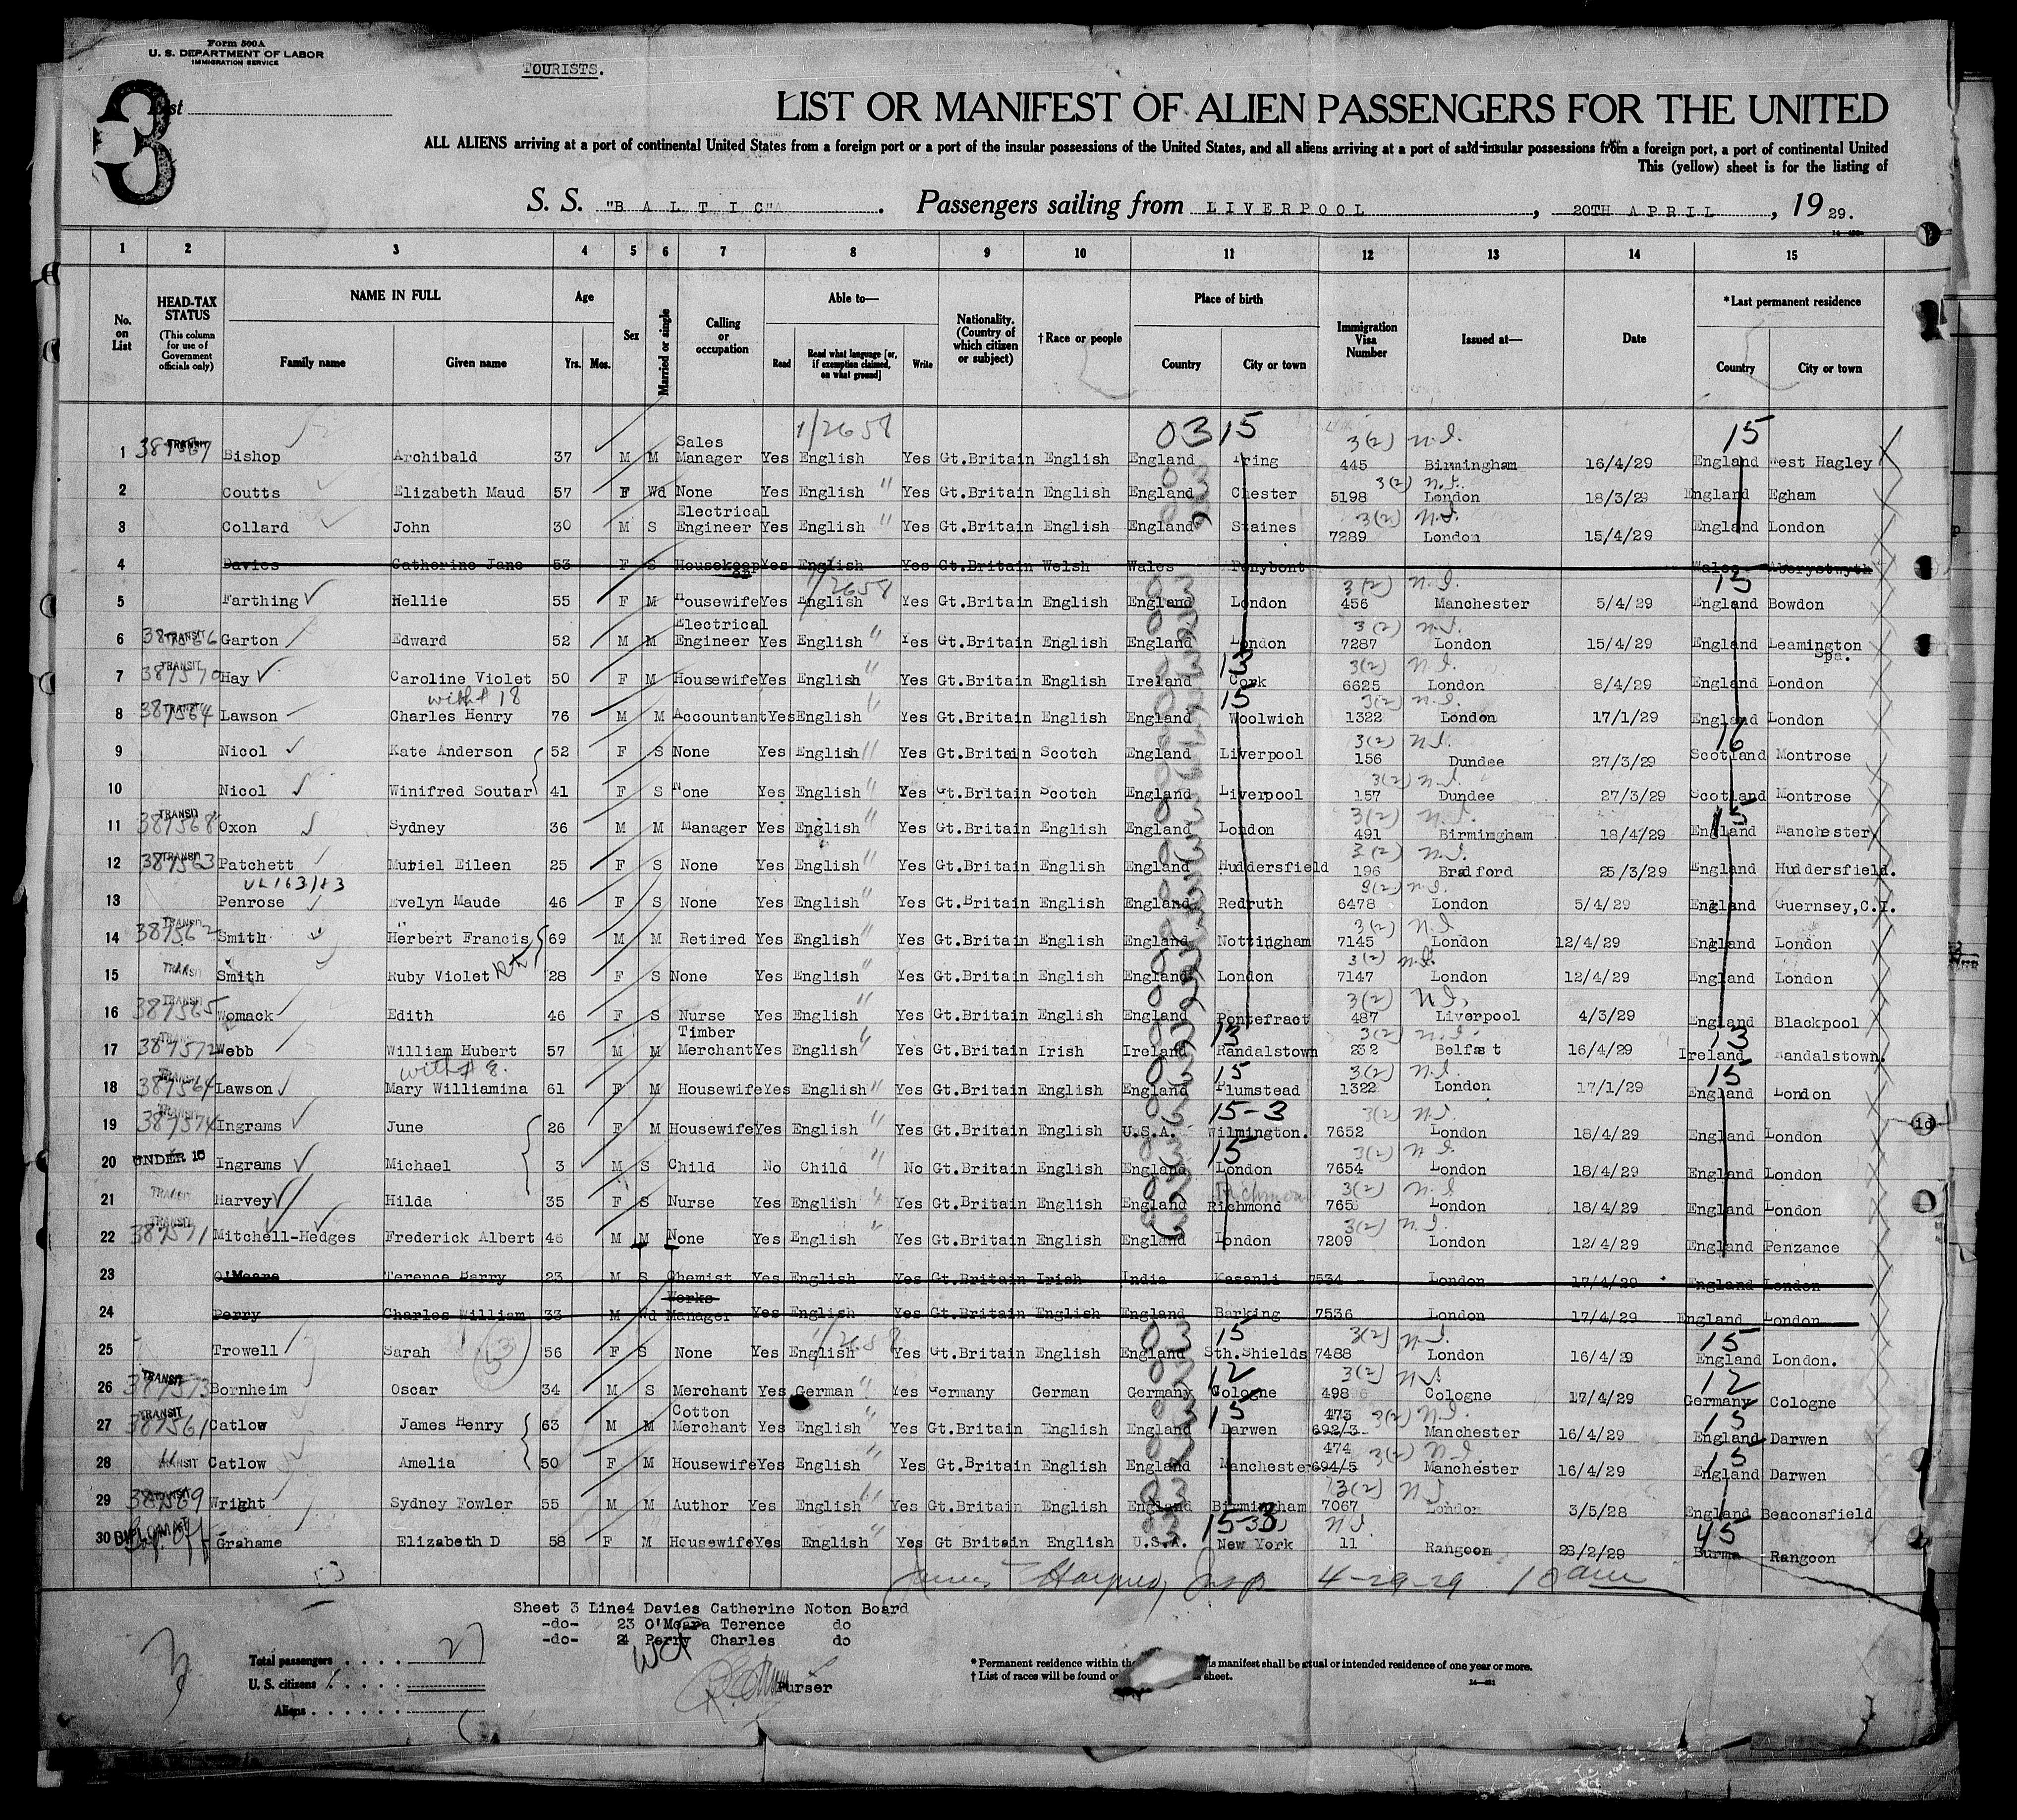 Form 500A
U. S. DEPARTMENT OF LABOR
IMMIGRATION SERVICE
TOURISTS.
3
List
LIST OR MANIFEST OF ALIEN PASSENGERS FOR THE UNITED
ALL ALIENS arriving at a port of continental United States from a foreign port or a port of the insular possessions of the United States, and all aliens arriving at a port of said insular possessions from a foreign port, a port of continental United
This (yellow) sheet is for the listing of
S. S. "BALTIC". Passengers sailing from LIVERPOOL, 20TH APRIL, 1929.
1 2 3 4 5 6 7 8 9 10 11 12 13 14 15
No. on List
HEAD-TAX STATUS (This column for use of Government officials only)
NAME IN FULL Family name Given name
Age Yrs. Mos.
Sex
Married or single
Calling or occupation
Able to— Read Read what language [or, if exemption claimed, on what ground] Write
Nationality. (Country of which citizen or subject)
†Race or people
Place of birth Country City or town
Immigration Visa Number
Issued at—
Date
*Last permanent residence Country City or town
1/2658 03 15 3(2) N.I. 15
1 387567 TRANSIT Bishop Archibald 37 M M Sales Manager Yes English Yes Gt.Britain English England Tring 445 Birmingham 16/4/29 England West Hagley
3(2) N.I.
2 Coutts Elizabeth Maud 57 F Wd None Yes English " Yes Gt.Britain English England Chester 5198 London 18/3/29 England Egham
3(2) N.I.
3 Collard John 30 M S Electrical Engineer Yes English " Yes Gt.Britain English England Staines 7289 London 15/4/29 England London
4 Davies Catherine Jane 53 F S Housekeeper Yes English Yes Gt.Britain Welsh Wales Penybont Wales Aberystwyth
1/2658 03 3(2) N.I. 15
5 Farthing Nellie 55 F M Housewife Yes English Yes Gt.Britain English England London 456 Manchester 5/4/29 England Bowdon
3(2) N.I.
6 387566 TRANSIT Garton Edward 52 M M Electrical Engineer Yes English " Yes Gt.Britain English England London 7287 London 15/4/29 England Leamington Spa.
13 3(2) N.I.
7 387570 TRANSIT Hay Caroline Violet 50 F M Housewife Yes English " Yes Gt.Britain English Ireland Cork 6625 London 8/4/29 England London
with # 18 15 3(2) N.I.
8 387564 TRANSIT Lawson Charles Henry 76 M M Accountant Yes English " Yes Gt.Britain English England Woolwich 1322 London 17/1/29 England London
3(2) N.I. 16
9 Nicol Kate Anderson 52 F S None Yes English " Yes Gt.Britain Scotch England Liverpool 156 Dundee 27/3/29 Scotland Montrose
3(2) N.I.
10 Nicol Winifred Soutar 41 F S None Yes English " Yes Gt.Britain Scotch England Liverpool 157 Dundee 27/3/29 Scotland Montrose
3(2) N.I. 15
11 387568 TRANSIT Oxon Sydney 36 M M Manager Yes English " Yes Gt.Britain English England London 491 Birmimgham 18/4/29 England Manchester
3(2) N.I.
12 387563 TRANSIT Patchett Muriel Eileen 25 F S None Yes English " Yes Gt.Britain English England Huddersfield 196 Bradford 25/3/29 England Huddersfield.
3(2) N.I.
13 Penrose Evelyn Maude 46 F S None Yes English " Yes Gt.Britain English England Redruth 6478 London 5/4/29 England Guernsey,C.I.
3(2) N.I.
14 387562 TRANSIT Smith Herbert Francis 69 M M Retired Yes English " Yes Gt.Britain English England Nottingham 7145 London 12/4/29 England London
3(2) N.I.
15 TRANSIT Smith Ruby Violet 28 F S None Yes English " Yes Gt.Britain English England London 7147 London 12/4/29 England London
3(2) N.I.
16 387565 TRANSIT Womack Edith 46 F S Nurse Yes English " Yes Gt.Britain English England Pontefract 487 Liverpool 4/3/29 England Blackpool
13 3(2) N.I. 13
17 387572 TRANSIT Webb William Hubert 57 M M Timber Merchant Yes English " Yes Gt.Britain Irish Ireland Randalstown 232 Belfast 16/4/29 Ireland Randalstown.
with # 8. 15 3(2) N.I. 15
18 387564 TRANSIT Lawson Mary Williamina 61 F M Housewife Yes English " Yes Gt.Britain English England Plumstead 1322 London 17/1/29 England London
15-3 3(2) N.I.
19 387574 TRANSIT Ingrams June 26 F M Housewife Yes English " Yes Gt.Britain English U.S.A. Wilmington. 7652 London 18/4/29 England London
15 3(2) N.I.
20 UNDER 16 Ingrams Michael 3 M S Child No Child " No Gt.Britain English England London 7654 London 18/4/29 England London
Richmond 3(2) N.I.
21 TRANSIT Harvey Hilda 35 F S Nurse Yes English " Yes Gt.Britain English England Richmond 765 London 18/4/29 England London
3(2) N.I.
22 387571 TRANSIT Mitchell-Hedges Frederick Albert 46 M M None Yes English " Yes Gt.Britain English England London 7209 London 12/4/29 England Penzance
23 O'Meara Terence Barry 23 M S Chemist Yes English Yes Gt.Britain Irish India Kasauli 7534 London 17/4/29 England London
24 Perry Charles William 33 M Wd Works Manager Yes English Yes Gt.Britain English England Barking 7536 London 17/4/29 England London
1/2658 03 15 3(2) N.I. 15
25 Trowell Sarah 56 F S None Yes English Yes Gt.Britain English England Sth.Shields 7488 London 16/4/29 England London.
12 3(2) N.I. 12
26 387573 TRANSIT Bornheim Oscar 34 M S Merchant Yes German " Yes Germany German Germany Cologne 498 Cologne 17/4/29 Germany Cologne
15 473 3(2) N.I. 15
27 387561 TRANSIT Catlow James Henry 63 M M Cotton Merchant Yes English " Yes Gt.Britain English England Darwen 692/3 Manchester 16/4/29 England Darwen
474 3(2) N.I. 15
28 " TRANSIT Catlow Amelia 50 F M Housewife Yes English " Yes Gt.Britain English England Manchester 694/5 Manchester 16/4/29 England Darwen
3(2) N.I.
29 387569 TRANSIT Wright Sydney Fowler 55 M M Author Yes English " Yes Gt.Britain English England Birmingham 7067 London 3/5/28 England Beaconsfield
15-33 N.I. 45
30 DIPLOMAT Grahame Elizabeth D 58 F M Housewife Yes English " Yes Gt Britain English U.S.A. New York 11 Rangoon 23/2/29 Burma Rangoon
James Haynes, Insp 4-29-29 10 am
Sheet 3 Line4 Davies Catherine Noton Board
-do- 23 O'Meara Terence do
-do- 24 Perry Charles do
Total passengers . . . . 27
U. S. citizens . . . .
Aliens . . . . . .
Purser
* Permanent residence within the is manifest shall be actual or intended residence of one year or more.
† List of races will be found on sheet.